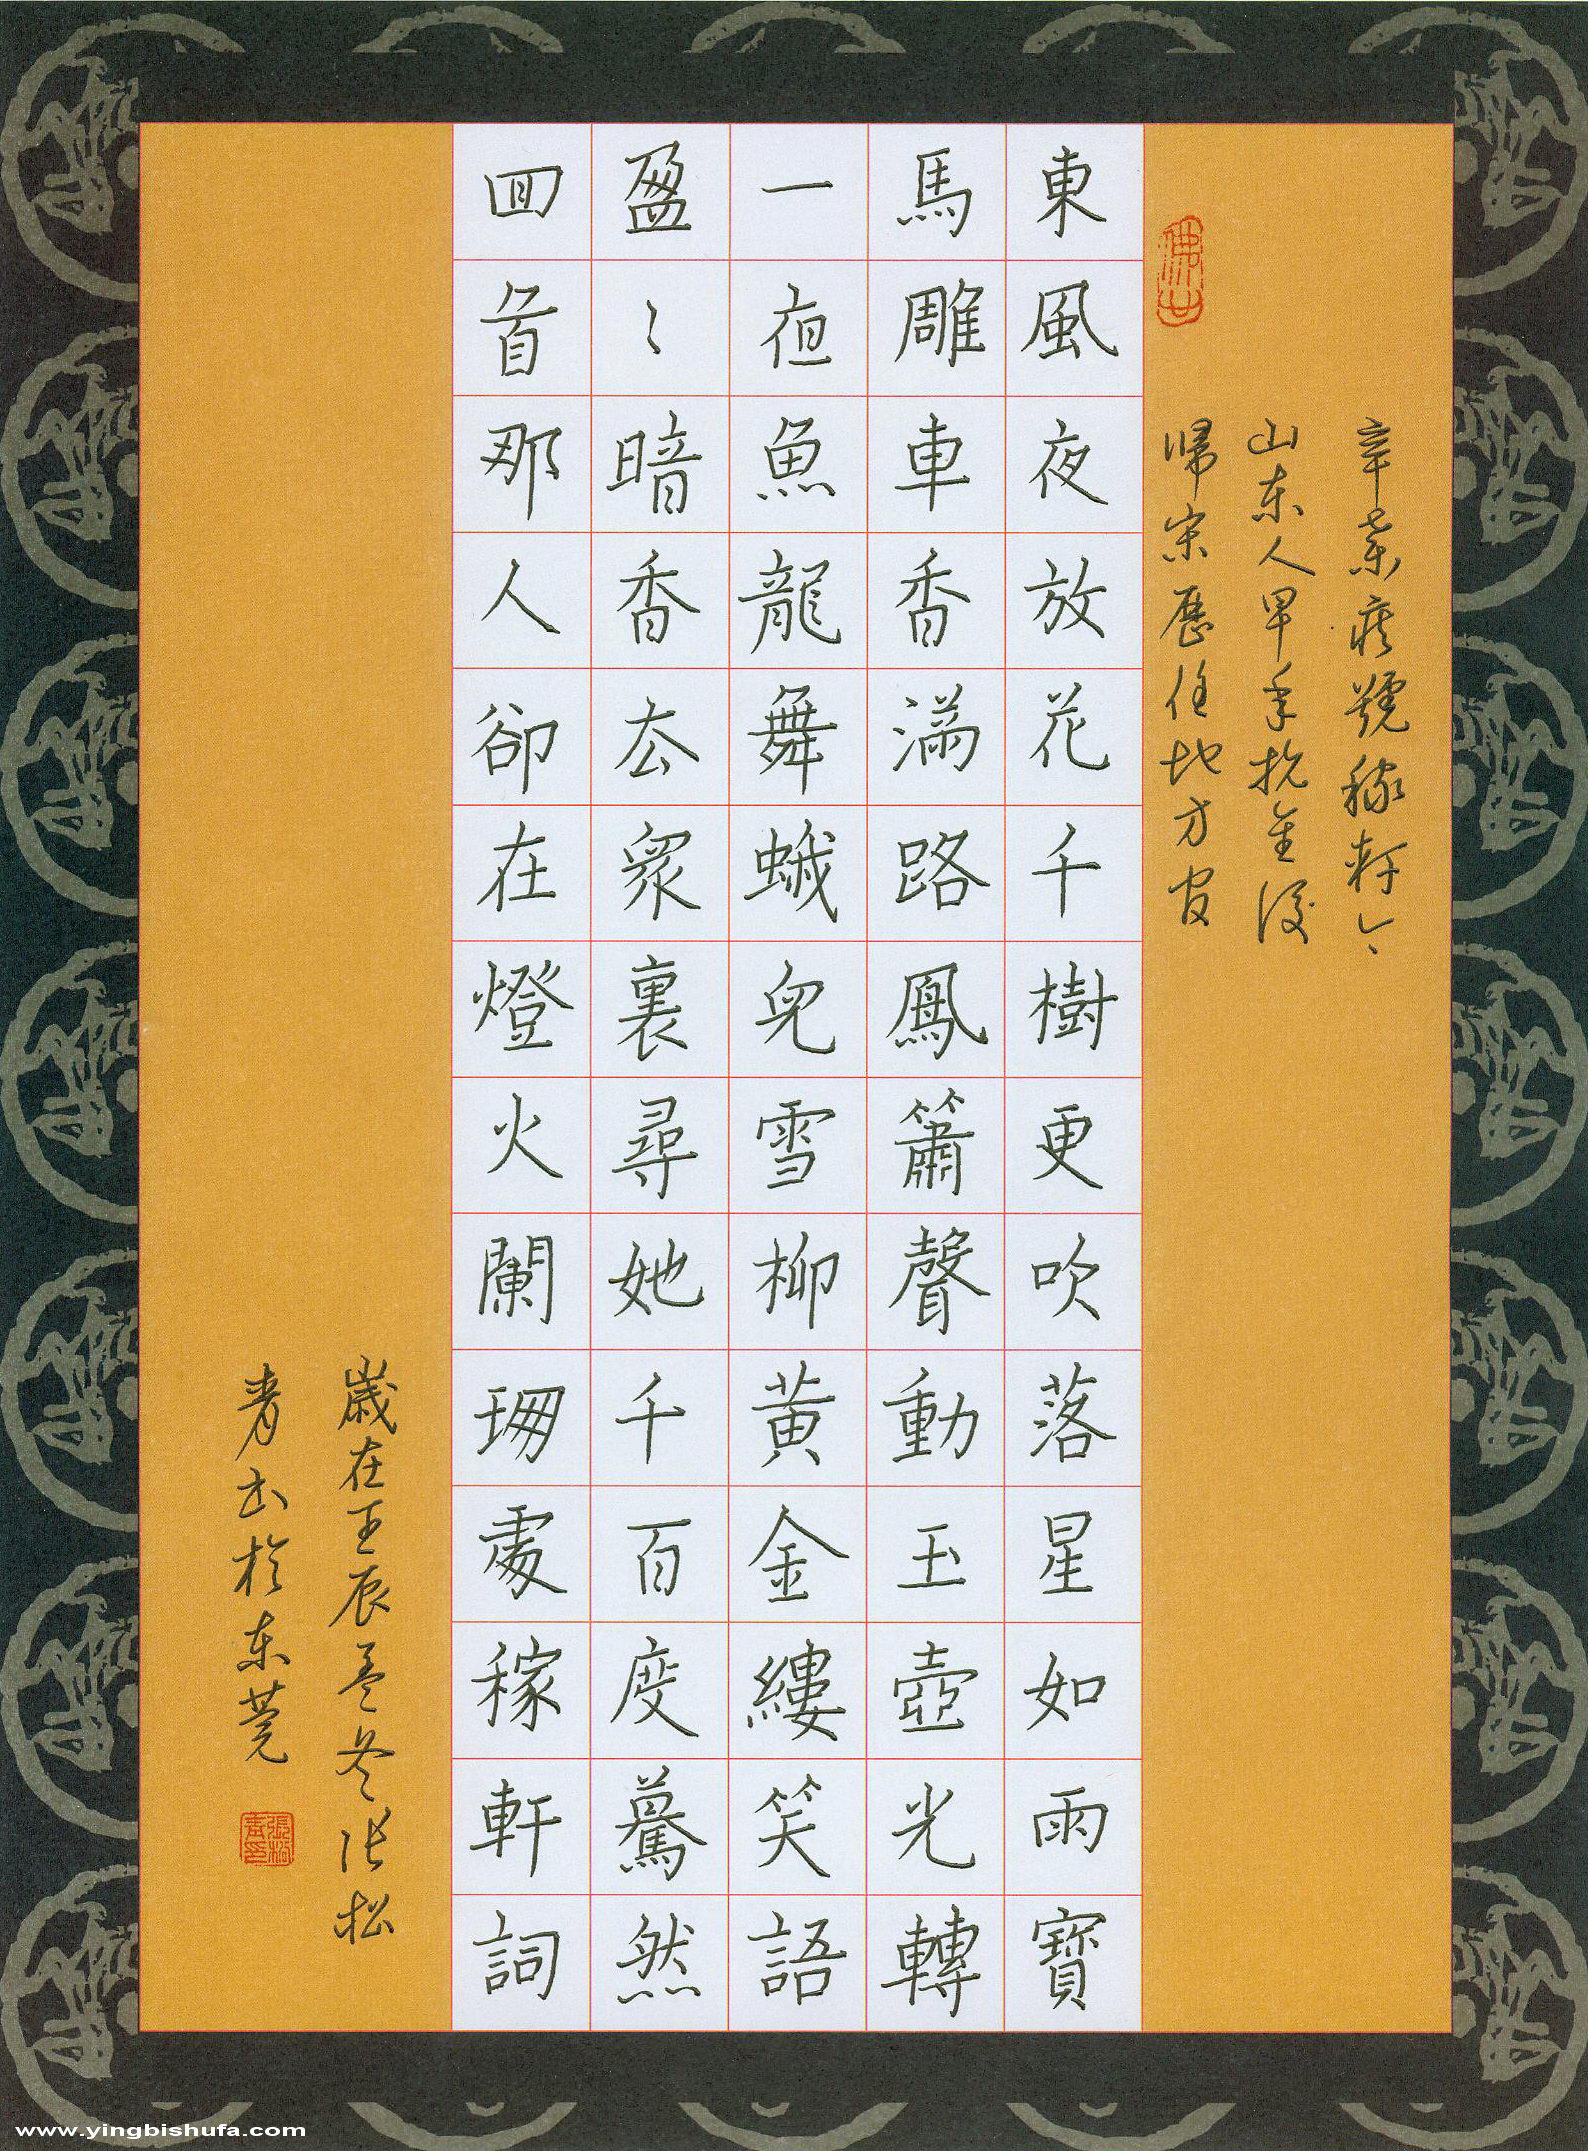 辛棄疾號稼軒
山东人早年抗金後
歸宋歷任地方官
東風夜放花千樹更吹落星如雨寶
馬雕車香滿路鳳簫聲動玉壺光轉
一夜魚龍舞蛾兒雪柳黃金縷笑語
盈〻暗香去眾裏尋她千百度驀然
回首那人卻在燈火闌珊處稼軒詞
歲在壬辰孟冬張松
青书於东莞
張松青印
www.yingbishufa.com